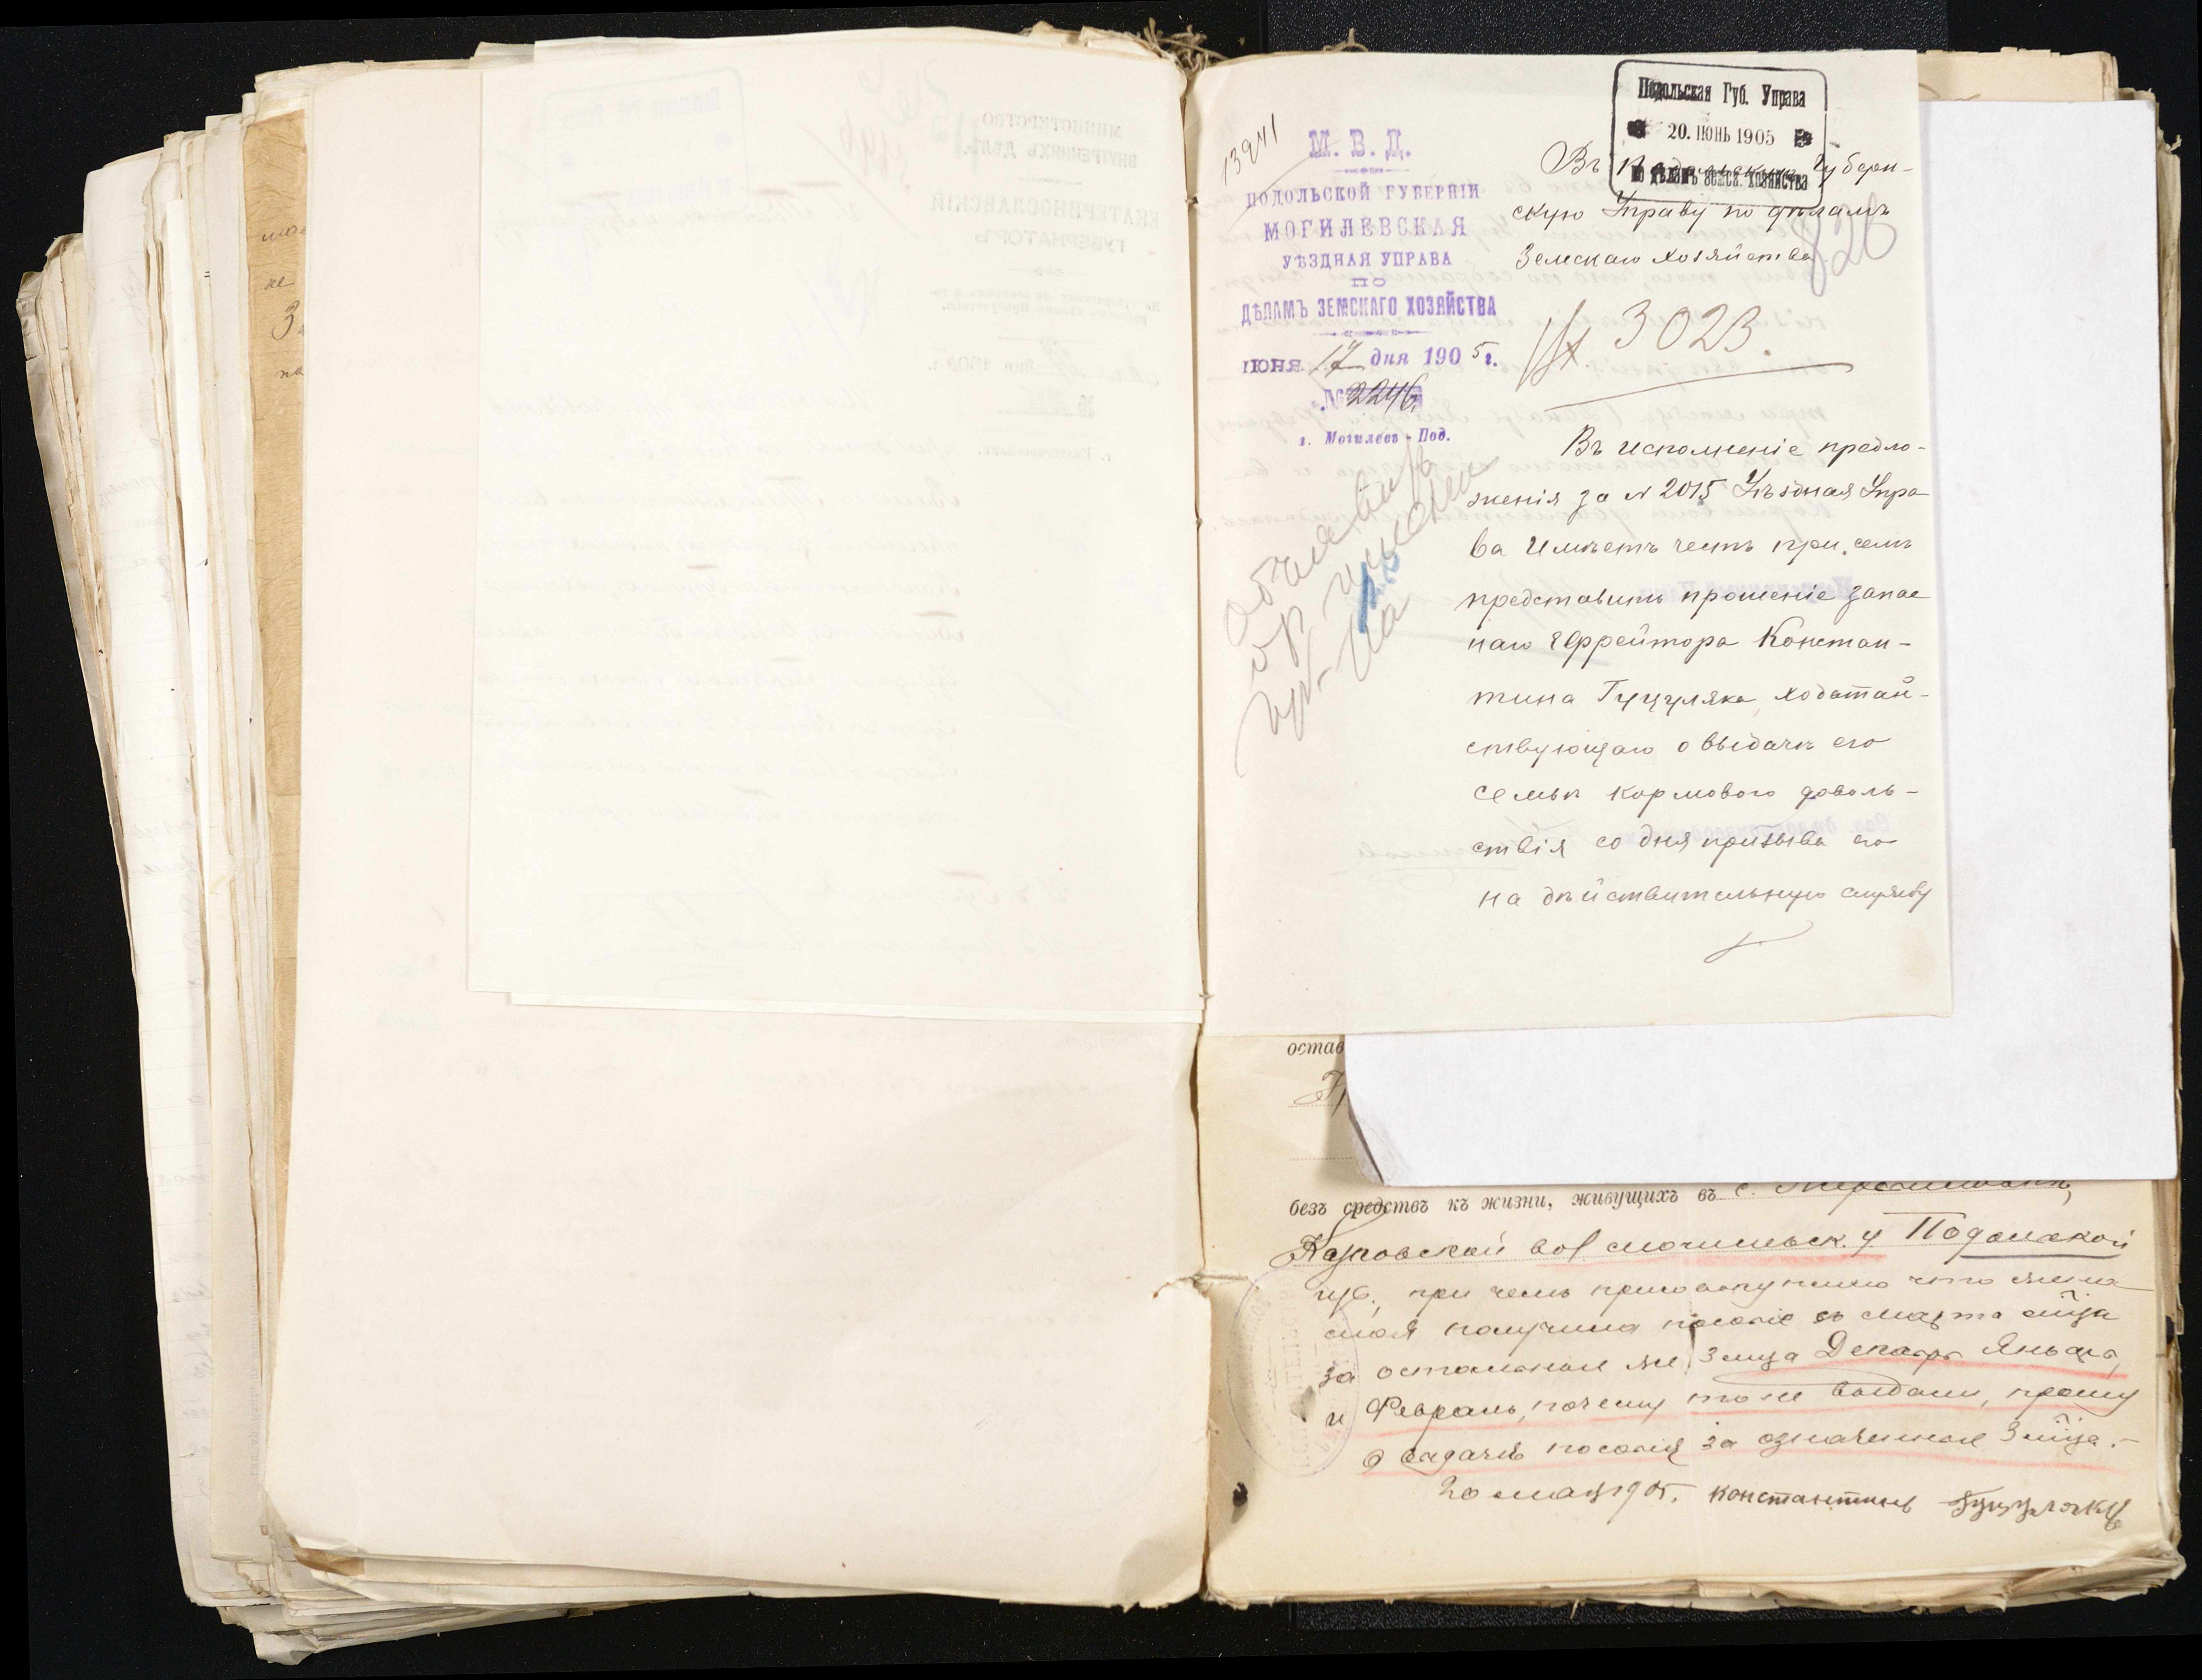 13941
М. В. Д.
ПОДОЛЬСКОЙ ГУБЕРНІИ
МОГИЛЕВСКАЯ
УѢЗДНАЯ УПРАВА
ПО
ДѢЛАМЪ ЗЕМСКАГО ХОЗЯЙСТВА
ІЮНЯ 17 дня 1905 г.
№ 2246.
г. Могилевъ-Под.
Подольская Губ. Управа
20. ІЮНЬ 1905
по дѣламъ земск. хозяйства
Въ Подольскую Губерн-
скую Управу по дѣламъ
Земскаго Хозяйства
826
3023.
Въ исполненіе предло-
женія за № 2015 Уѣздная Упра
ва имѣетъ честь при семъ
представить прошеніе запас
наго ефрейтора Констан-
тина Гуцуляка, ходатай-
ствующаго о выдачѣ его
семьѣ кормового доволь-
ствія со дня призыва его
на дѣйствительную службу
остав
безъ средствъ къ жизни, живущихъ въ с.
вол могилевск. у Подольской
губ., при чемъ присовокупляю что жена
моя получила пособіе съ марта мѣца
за остальные же 3 мца Декабрь Январь,
и Февраль, почему то не выдали, прошу
о выдачѣ пособія за означенные 3 мѣца.-
20 мая 1905. Константинъ Гуцулякъ